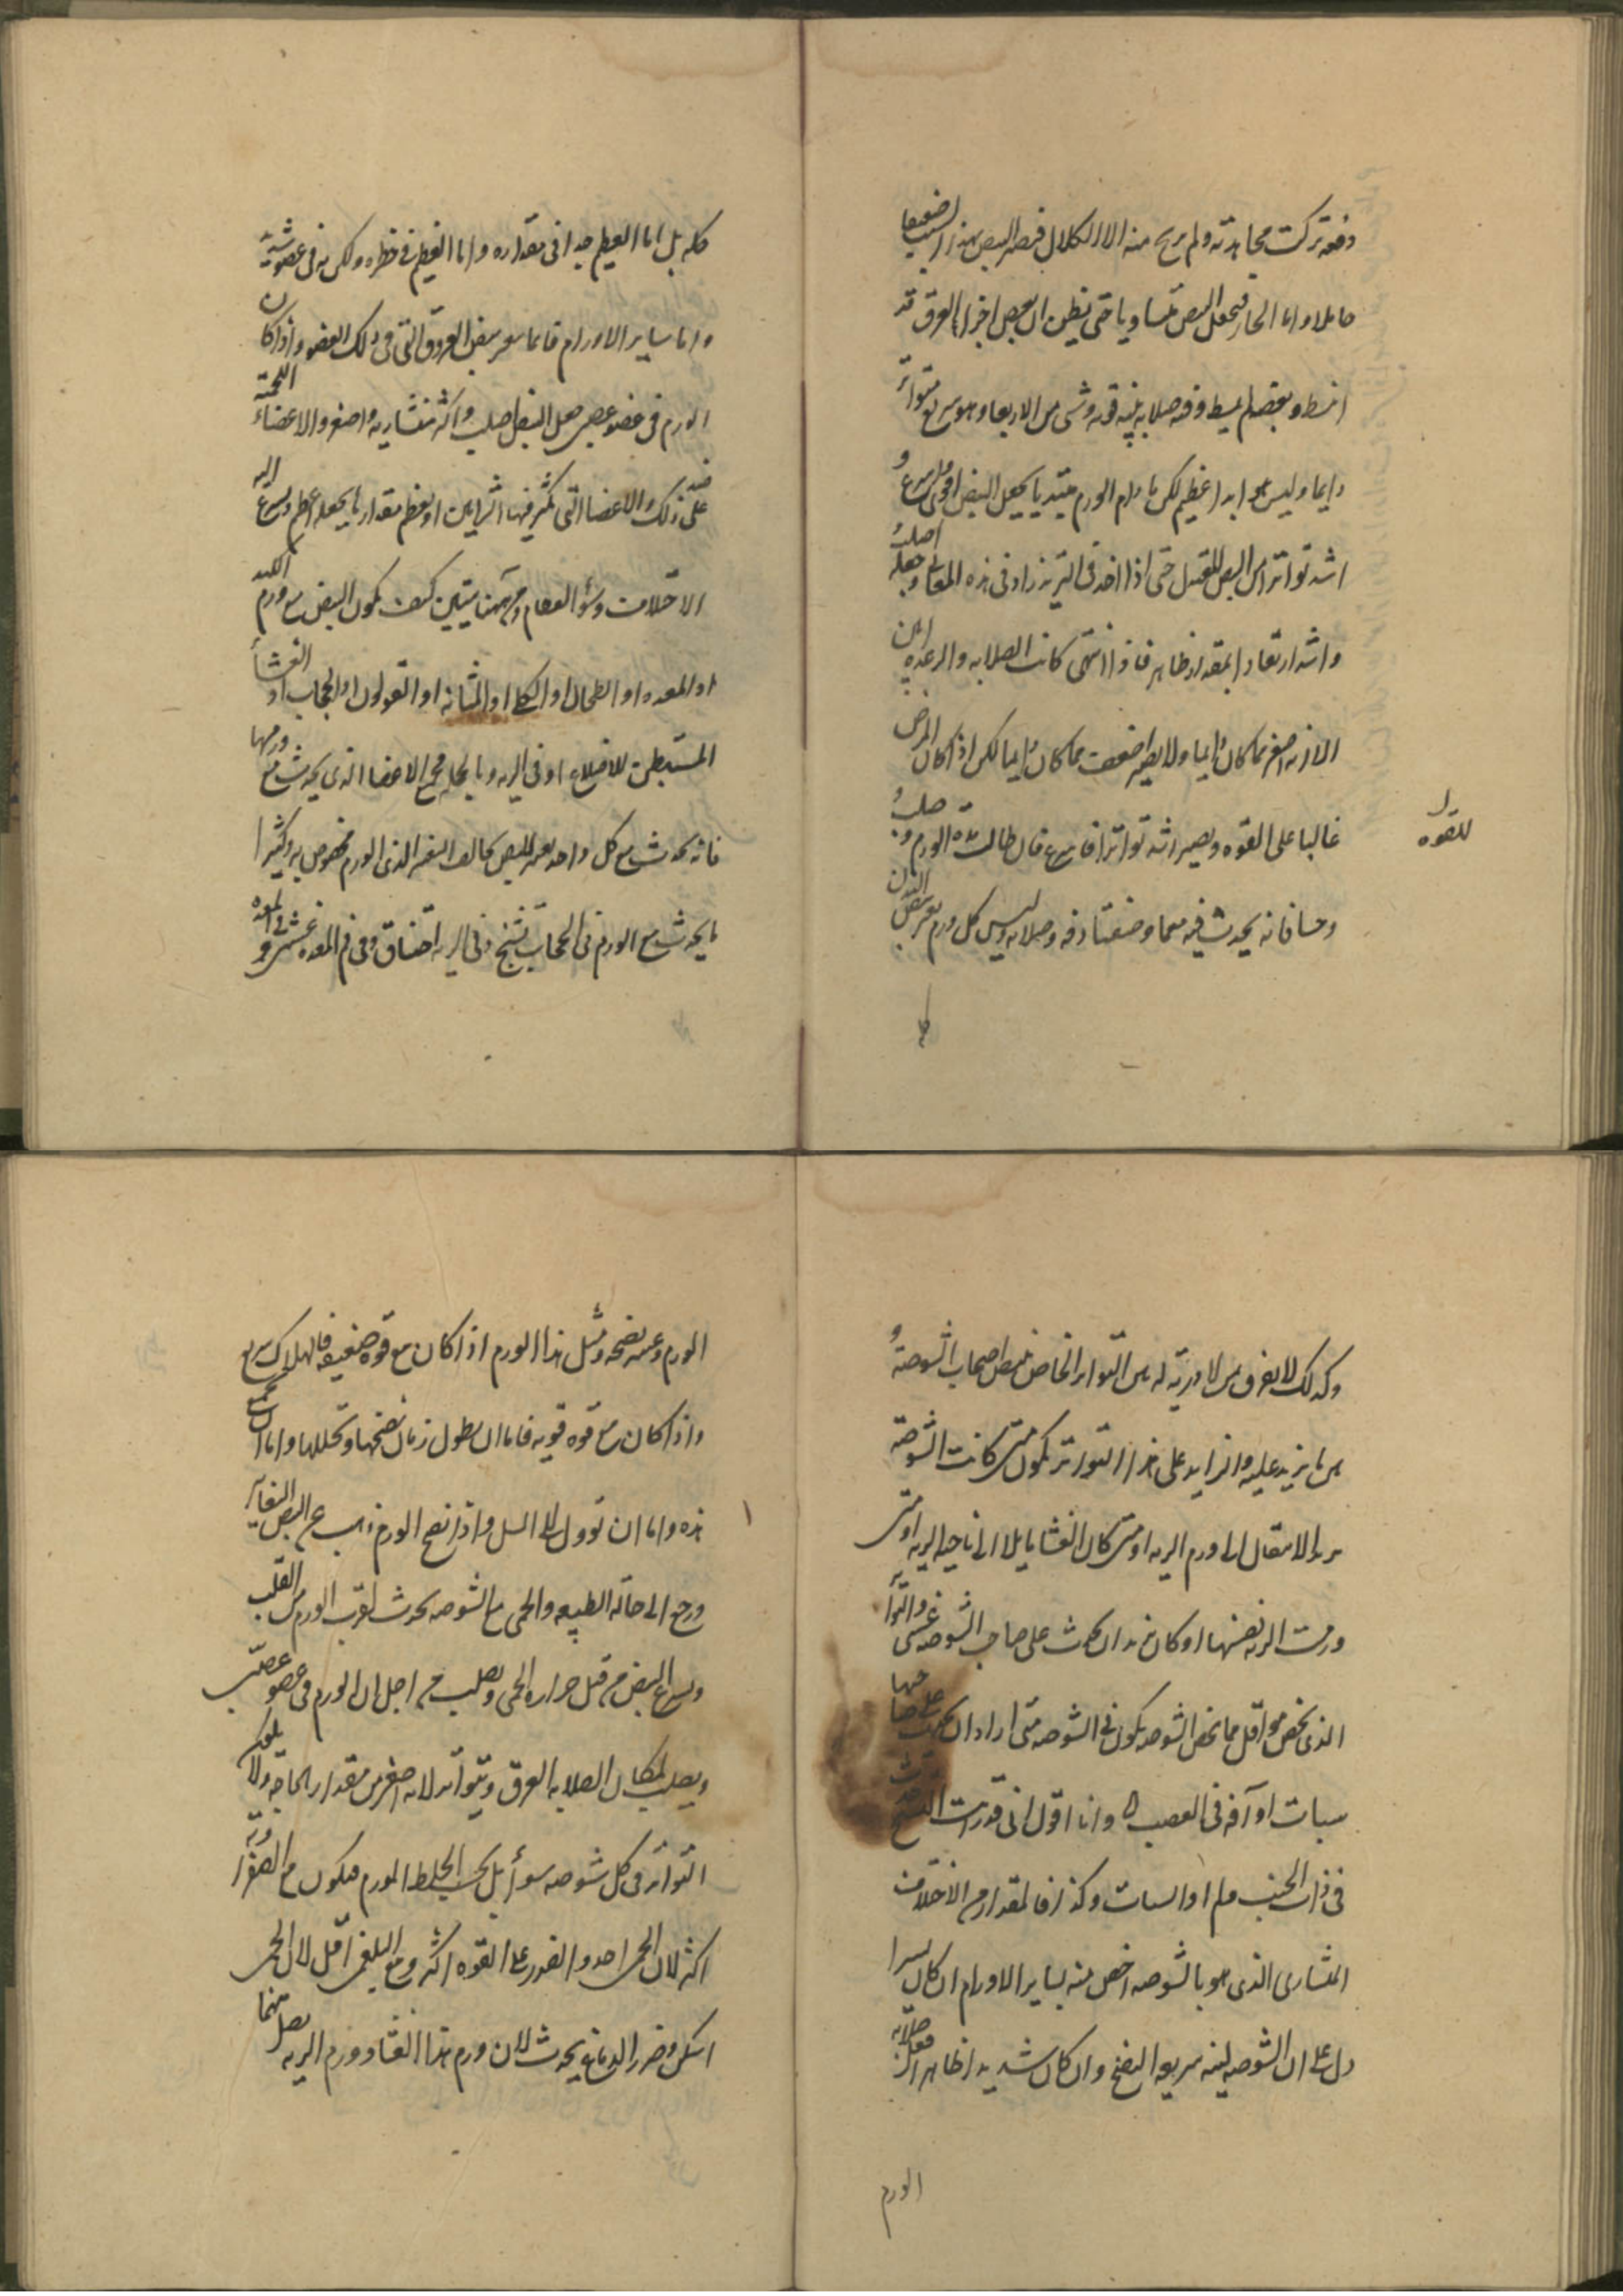 دفعة تركت مجاهدته ولم يرح منه الا الكلال فيصير النبض بهذا السبب ضعيفا
حاملا واما الحار فيجعل النبض متساويا حتى يظن ان بعض اجزاء العرق قد
انبسط وبعضها لم ينبسط وفيه صلابة بينة قوية وشى من الارتعاد وهو سريع متواتر
دايما وليس هو ابدا عظيم لكن ما دام الورم مبتديا يجعل النبض اقوى واسرع و
اشد تواترا من النبض المعتدل حتى اذا اخذ فى التزيد زاد فى هذه المعانى وجعله اصلب
واشد ارتعادا بمقدار ظاهر فاذا انتهى كانت الصلابة والرعدة ابين
الا انه اصغر مما كان دايما ولا يصير اضعف مما كان دايما لكن اذا كان المرض
غالبا على القوه ويصير اشد تواترا فاسرع فان طالت مدة الورم وصلب
للقوه
وجسا فانه يحدث فيه معما وصفنا دقه وصلابه وليس كل ورم يغير نبض البدن
كله
كله بل اما العظيم جدا فى مقداره واما العظيم فى خطره ولكن فى عضو شريف
واما ساير الاورام فانما تغير نبض العروق التى فى ذلك العضو واذا كان
الورم فى عضو عصبى جعل النبض اصلب واكثر منشاريه واصغر والاعضاء اللحمية
على ضد ذلك والاعضا التى تكثر فيها الشرايين او يعظم مقدارها يجعله اعظم واسرع الى
الاختلاف وسوء النظام ومن هاهنا يتبين كيف يكون النبض مع ورم الكبد
او المعده او الطحال او الكلا او المثانه او القولون او الحجاب او الغشاء
المستبطن للاضلاع او فى الريه وبالجمله جميع الاعضا الذى يحدث مع ورمها
فانه يحدث مع كل واحد تغير للنبض يخالف التغير الذى الورم مخصوص به وكثيرا
ما يحدث مع الورم فى الحجاب تشنج وفى الريه اختناق وفى فم المعده غشى وفى المعده
وكذلك لا يفرق بين الاوزيد له من التواتر الخاص بنبض اصحاب الشوصة و
بين ما يزيد عليه والزايد على هذا التواتر يكون متى كانت الشوصة
تريد الانتقال الى ورم الريه او متى كان الغشا مايلا الى ناحيه الريه او متى
ورمت الريه نفسها او كان يريد ان يحدث على صاحب الشوصه غشى والتواتر
الذى يخص هو اقل مما يخص الشوصه يكون فى الشوصه متى اراد ان يحدث على صاحبها
سبات او آفه فى العصب وانا اقول انى قد رايت التشنج
فى ذات الجنب ولم ار السبات وكذا فالمقدار من الاختلاف
المنشارى الذى هو بالشوصه اخص منه بساير الاورام ان كان يسيرا
دل على ان الشوصه لينه سريعه النضج وان كان شديدا ظاهرا فعلى صلابة
الورم
الورم وعسر نضجه ومثل هذا الورم اذا كان مع قوه ضعيفه فالهلاك سريع
واذا كان مع قوه قويه فاما ان يطول زمان نضجها وتحللها واما ان
هذه واما ان تؤول الى السل واذا نضج الورم ذهب عن النبض التغاير
ورجع الى حاله الطبيعه والحمى مع الشوصه تحدث لقرب الورم من القلب
ويسرع النبض من قبل حراره الحمى ويصلب من اجل ان الورم فى عضو عصبى
ويصلب لمكان الصلابه العرق ويتواتر لانه اصغر من مقدار الحاجه ولا يكون
التواتر فى كل شوصه سواء بل بحسب الخلط المورم فيكون من الصفراويه
اكثر لان الحمى احد والضرر على القوه اكثر ومع البلغمى اقل لان الحمى
اسكن وضرر الدماغ يحدث لان ورم هذا الغشا وورم الريه يصل منهما